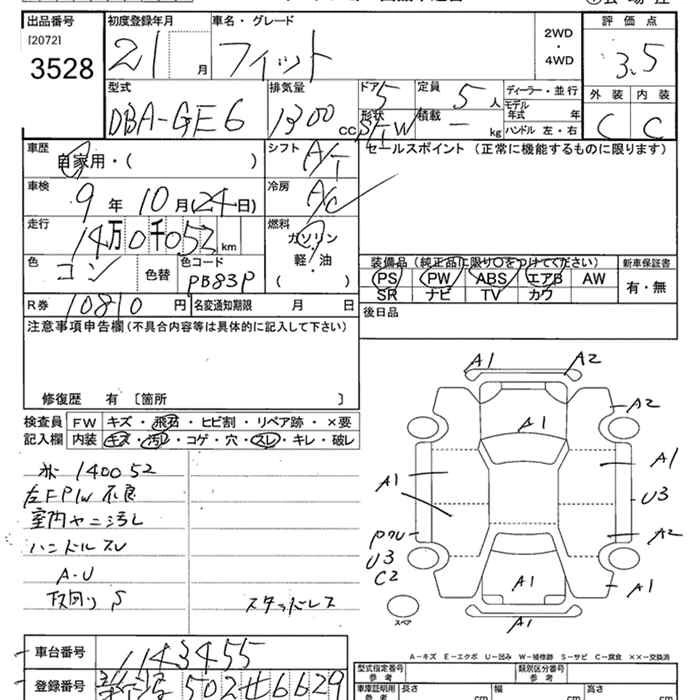 出品番号 初度登録年月 車名・グレード 2WD・4WD 評価点
[2072]
3528 21 月 フィット 3.5
型式 排気量 ドア 5 定員 5 人 ディーラー・並行 外装 内装
DBA-GE6 1300 cc 形状 S/W 積載 ー kg モデル年式 年 C C
ハンドル 左・右
車歴 自家用・( ) シフト A/T セールスポイント (正常に機能するものに限ります)
車検 9 年 10 月(24日) 冷房 A/C
走行 14万0千052 km 燃料 ガソリン
色 コン 色替 色コード PB83P 軽・油
( )
装備品 (純正品に限り○をつけてください) 新車保証書
PS PW ABS エアB AW 有・無
SR ナビ TV カワ
R券 10810 円 名変通知期限 月 日 後日品
注意事項申告欄(不具合内容等は具体的に記入して下さい)
修復歴 有 〔箇所 〕
検査員 FW キズ・飛石・ヒビ割・リペア跡・×要
記入欄 内装 キズ・汚レ・コゲ・穴・スレ・キレ・破レ
140052
左FP/W不良
室内ヤニ汚レ
ハンドルスレ
A・U
下回りS
スタッドレス
A1 A2
A2
A1
A1 A1
U3
A2
U3
C2
A1 A1
A1
スペア
A-キズ E-エクボ U-凹み W-補修跡 S-サビ C-腐食 ××-交換済
車台番号 1143455
登録番号 502 せ 6629
型式指定番号 参考 類別区分番号 参考
車庫証明用 参考 長さ cm 幅 cm 高さ cm